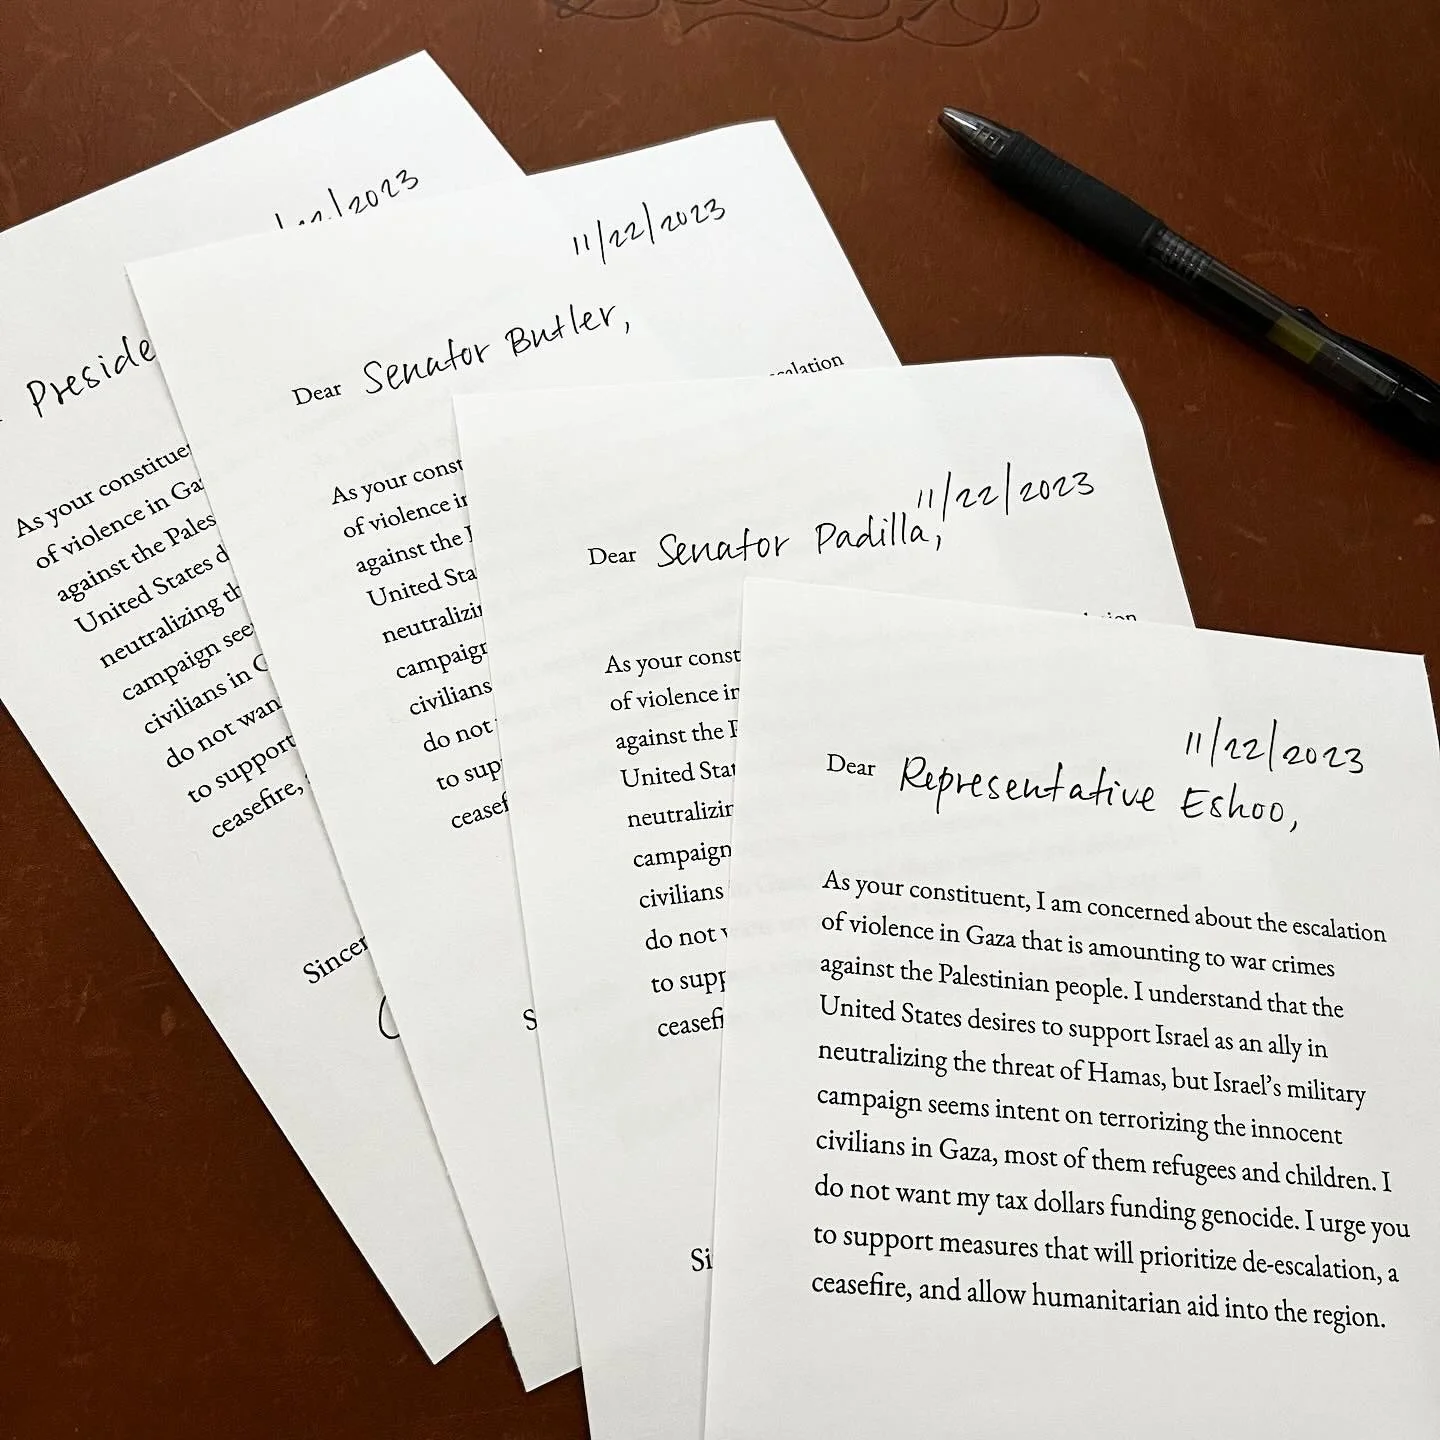 2023
Preside
As your constitue
of violence in Ga
against the Pales
United States d
neutralizing th
campaign see
civilians in G
do not wan
to support
ceasefire,
Sincer
11/22/2023
Dear Senator Butler,
escalation
As your const
of violence in
against the P
United Sta
neutralizin
campaign
civilians
do not
to sup
ceasef
S
11/22/2023
Dear Senator Padilla,
As your const
of violence in
against the P
United Stat
neutralizin
campaign
civilians
do not w
to supp
ceasefi
Si
11/22/2023
Dear Representative Eshoo,
As your constituent, I am concerned about the escalation
of violence in Gaza that is amounting to war crimes
against the Palestinian people. I understand that the
United States desires to support Israel as an ally in
neutralizing the threat of Hamas, but Israel's military
campaign seems intent on terrorizing the innocent
civilians in Gaza, most of them refugees and children. I
do not want my tax dollars funding genocide. I urge you
to support measures that will prioritize de-escalation, a
ceasefire, and allow humanitarian aid into the region.